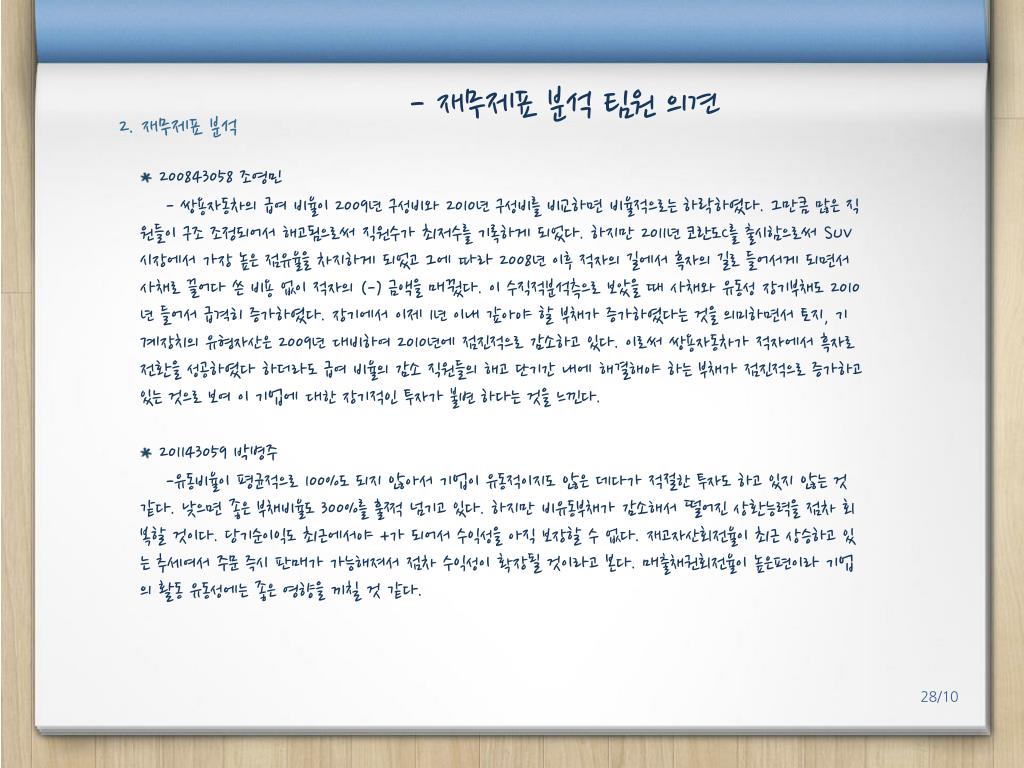 - 재무제표 분석 팀원 의견
2. 재무제표 분석
* 200843058 조영민
- 쌍용자동차의 급여 비율이 2009년 구성비와 2010년 구성비를 비교하면 비율적으로는 하락하였다. 그만큼 많은 직
원들이 구조 조정되어서 해고됨으로써 직원수가 최저수를 기록하게 되었다. 하지만 2011년 코란도C를 출시함으로써 SUV
시장에서 가장 높은 점유율을 차지하게 되었고 그에 따라 2008년 이후 적자의 길에서 흑자의 길로 들어서게 되면서
사채로 끌어다 쓴 비용 없이 적자의 (-) 금액을 매꿨다. 이 수직적분석측으로 보았을 때 사채와 유동성 장기부채도 2010
년 들어서 급격히 증가하였다. 장기에서 이제 1년 이내 갚아야 할 부채가 증가하였다는 것을 의미하면서 토지, 기
계장치의 유형자산은 2009년 대비하여 2010년에 점진적으로 감소하고 있다. 이로써 쌍용자동차가 적자에서 흑자로
전환을 성공하였다 하더라도 급여 비율의 감소 직원들의 해고 단기간 내에 해결해야 하는 부채가 점진적으로 증가하고
있는 것으로 보여 이 기업에 대한 장기적인 투자가 불변 하다는 것을 느낀다.
* 201143059 박병주
-유동비율이 평균적으로 100%도 되지 않아서 기업이 유동적이지도 않은 데다가 적절한 투자도 하고 있지 않는 것
같다. 낮으면 좋은 부채비율도 300%를 훌쩍 넘기고 있다. 하지만 비유동부채가 감소해서 떨어진 상환능력을 점차 회
복할 것이다. 당기순이익도 최근에서야 +가 되어서 수익성을 아직 보장할 수 없다. 재고자산회전율이 최근 상승하고 있
는 추세여서 주문 즉시 판매가 가능해져서 점차 수익성이 확장될 것이라고 본다. 매출채권회전율이 높은편이라 기업
의 활동 유동성에는 좋은 영향을 끼칠 것 같다.
28/10